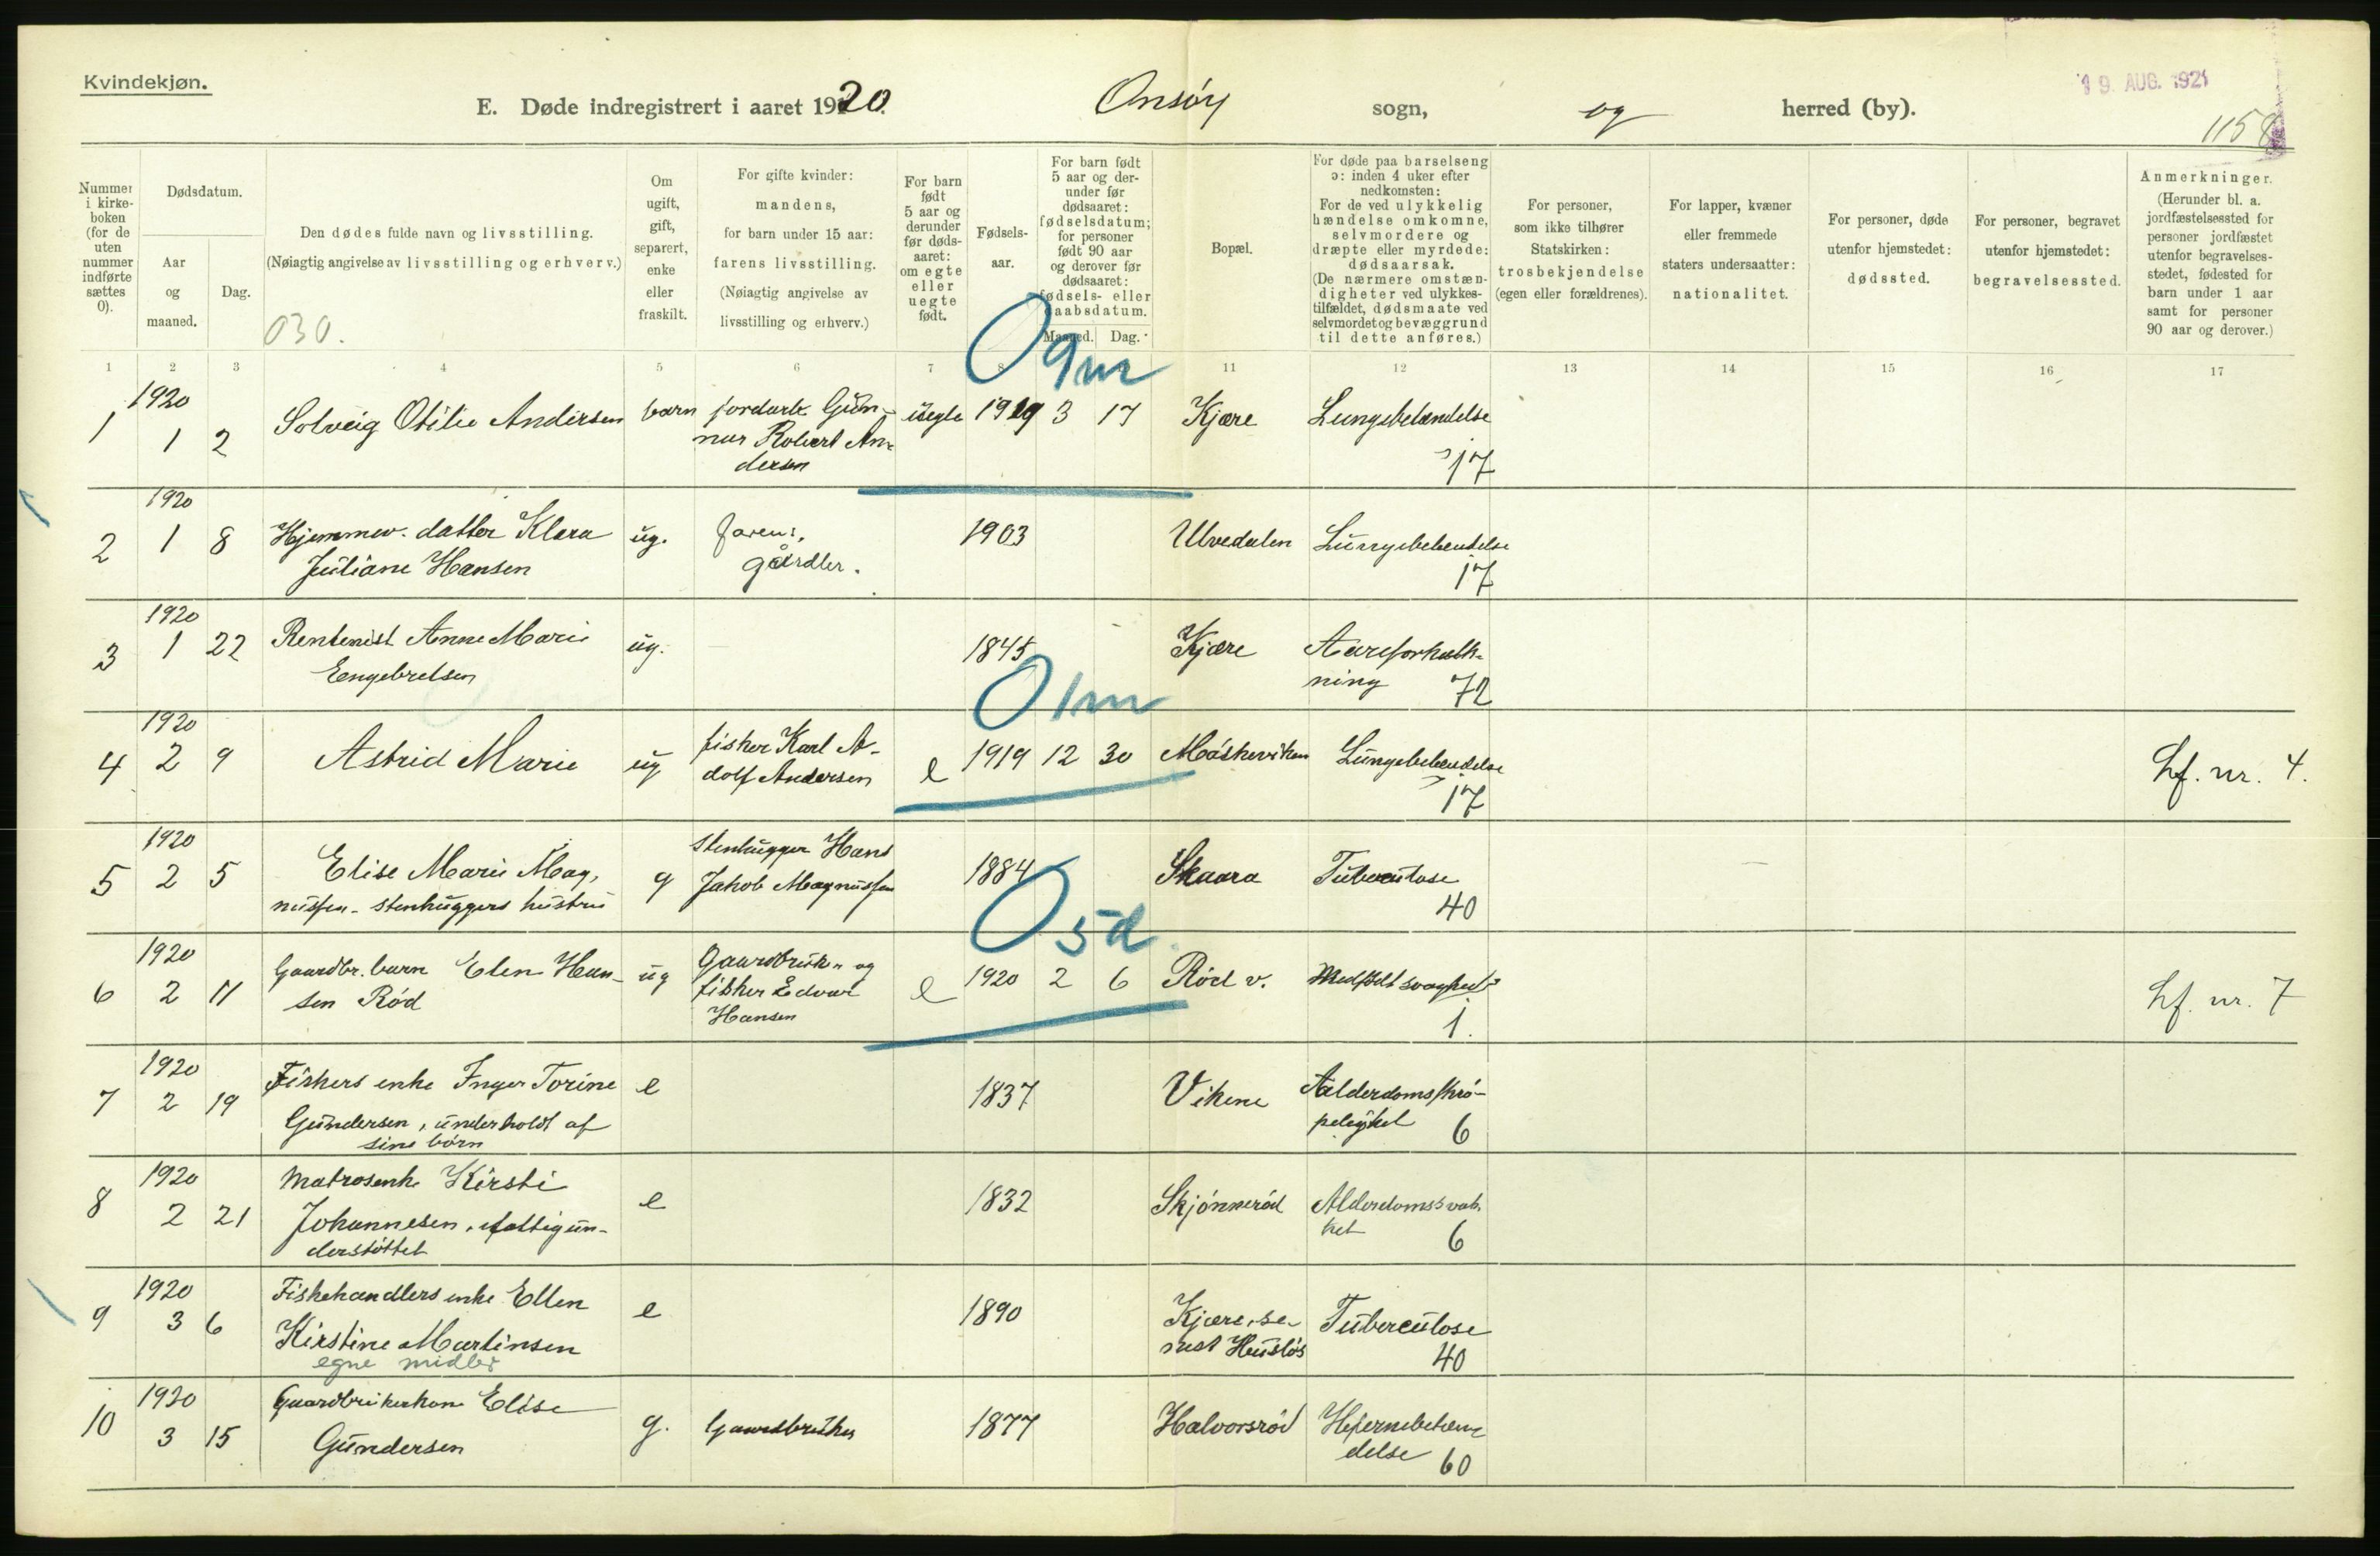 Kvindekjøn.
E. Døde indregistrert i aaret 1920.
Onsöy sogn, og herred (by).
19. AUG. 1921
1158
Nummer i kirkeboken (for de uten nummer indførte sættes 0).
Dødsdatum.
Aar og maaned.
Dag.
Den dødes fulde navn og livsstilling.
(Nøiagtig angivelse av livsstilling og erhverv.)
030.
Om ugift, gift, separert, enke eller fraskilt.
For gifte kvinder: mandens, for barn under 15 aar: farens livsstilling. (Nøiagtig angivelse av livsstilling og erhverv.)
For barn født 5 aar og derunder før dødsaaret: om egte eller uegte født.
Fødselsaar.
For barn født 5 aar og derunder før dødsaaret: fødselsdatum; for personer født 90 aar og derover før dødsaaret: fødsels- eller daabsdatum.
Maaned. Dag.
Bopæl.
For døde paa barselseng ɔ: inden 4 uker efter nedkomsten: For de ved ulykkelig hændelse omkomne, selvmordere og dræpte eller myrdede: dødsaarsak. (De nærmere omstændigheter ved ulykkestilfældet, dødsmaate ved selvmordet og bevæggrund til dette anføres.)
For personer, som ikke tilhører Statskirken: trosbekjendelse (egen eller forældrenes).
For lapper, kvæner eller fremmede staters undersaatter: nationalitet.
For personer, døde utenfor hjemstedet: dødssted.
For personer, begravet utenfor hjemstedet: begravelsessted.
Anmerkninger. (Herunder bl. a. jordfæstelsessted for personer jordfæstet utenfor begravelsesstedet, fødested for barn under 1 aar samt for personer 90 aar og derover.)
1 2 3 4 5 6 7 8 11 12 13 14 15 16 17
0 9 m
1 1920 1 2 Solveig Otilie Andersen barn jordarb. Gunnar Robert Andersen uegte 1919 3 17 Kjære Lungebetændelse 17
2 1920 1 8 Hjemmev. datter Klara Juliane Hansen ug. farens, gårdbr. 1903 Ulvedalen Lungebetændelse 17
3 1920 1 22 Rentenist Anne Marie Engebretsen ug. 1845 Kjære Aareforkalkning 72
0 1 m
4 1920 2 9 Astrid Marie ug fisker Karl Adolf Andersen e 1919 12 30 Måskeviken Lungebetændelse 17 Lf. nr. 4.
5 1920 2 5 Elise Marie Magnussen - stenhuggers hustru g stenhugger Hans Jakob Magnussen 1884 Skaara Tuberculose 40
0 5 d.
6 1920 2 11 Gaardbr. barn Elen Hansen Röd ug Gaardbruk. og fisker Edvar Hansen e 1920 2 6 Röd v. Medfødt svaghet 1. Lf. nr. 7
7 1920 2 19 Fiskers enke Inger Torine Gundersen, underholdt af sine börn e 1837 Vikene Aalderdomsskröpelighet 6
8 1920 2 21 Matrosenke Kirsti Johannesen, fattigunderstöttet e 1832 Skjönneröd Alderdomssvakhet 6
9 1920 3 6 Fiskehandlers enke Ellen Kirstine Martinsen egne midler e 1890 Kjære, senest Huslös Tuberculose 40
10 1920 3 15 Gaardbrukerkone Elise Gundersen g. Gaardbruker 1877 Halvorsröd Hjernebetændelse 60